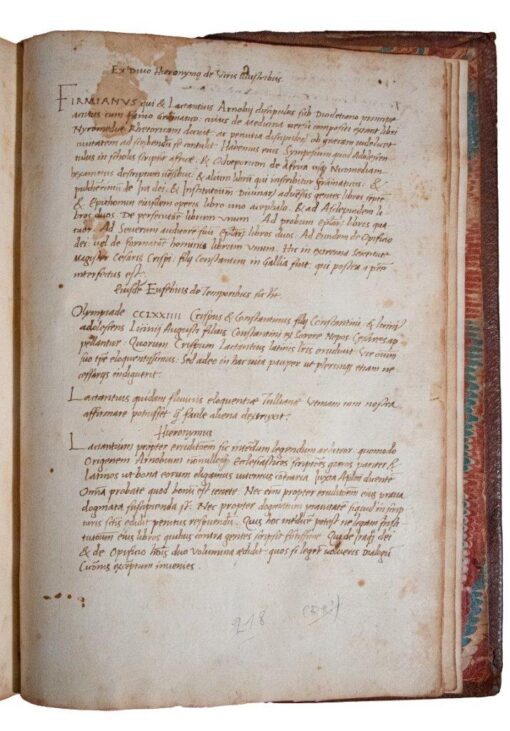 Ex Divo Hieronymo de Viris Illustribus.
FIRMIANVS qui & Lactantius Arnobij discipulus sub Diocletiano principe
accitus cum Flavio Grammatico cuius de Medicina versu compositi extant libri
Nicomediae Rhetoricam docuit ac penuria discipulorum ob graecam
civitatem ad scribendum se contulit. Habemus eius Symposium quod Adolescen
tulus in scholis scripsit africae & Odoeporicon de Africa usque Nicomediam
hexametris descriptum versibus & alium librum qui inscribitur Grammaticus &
pulcherrimum de Ira dei & Institutionum Divinarum adversus gentes libros septem
& Epithomen eiusdem operis libro uno & ad Asclepiadem li
bros duos De persecutione librum unum Ad probum libros qua
tuor Ad Severum libros duos Ad Eundem de Opificio
dei vel de formatione hominis librum unum Hic in extrema Senectute
Magister Cesaris Crispi filij Constantini in Gallia fuit qui postea a patre
interfectus est.
Eusebius de Temporibus
Olympiade CCLXXIIII Crispus & Constantinus filij Constantini & Licini
adolescens Licinij Augusti filius Constantini ex Sorore Nepos Cesares ap
pellantur Quorum Crispum Lactantius latinis lris erudivit Vir omnium
suo tpre eloquentissimus Sed adeo in hac vita pauper ut plerumque etiam ne
cessarijs indiguerit.
Lactantius quidam fluvius eloquentiae Tullianae Utinam tam nostra
affirmare potuisset facile aliena destruxit.
Hieronymus
Lactantium propter eruditionem sic interdum legendum arbitror quomodo
Origenem Arnobium nonnullos Ecclesiasticos scriptores graecos pariter &
Latinos ut bona eorum eligamus vitemus contraria Iuxta Aplm dicente
Omnia probate quod bonum est tenete Nec eius propter eruditionem eius prava
dogmata suscipienda st Nec propter dogmatum pravitatem siquid in scrip
turis scis edidit penitus respuendum. Quis hoc interdum potest ne legant Insti
tutionum eius libros quibus contra gentes scripsit Quia de Ira dei
& de Opificio hois duo Volumina edidit quos si legere volueris Dialogorum
Ciceronis inveneris
218